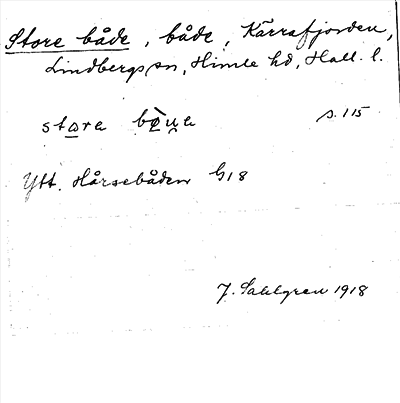 Store både, både, Kärrafjorden,
Lindbergs sn, Himle hd, Hall. l.
stora bò̯u̯a s. 115
Ytt. Hårsebåden G18
J. Sahlgren 1918